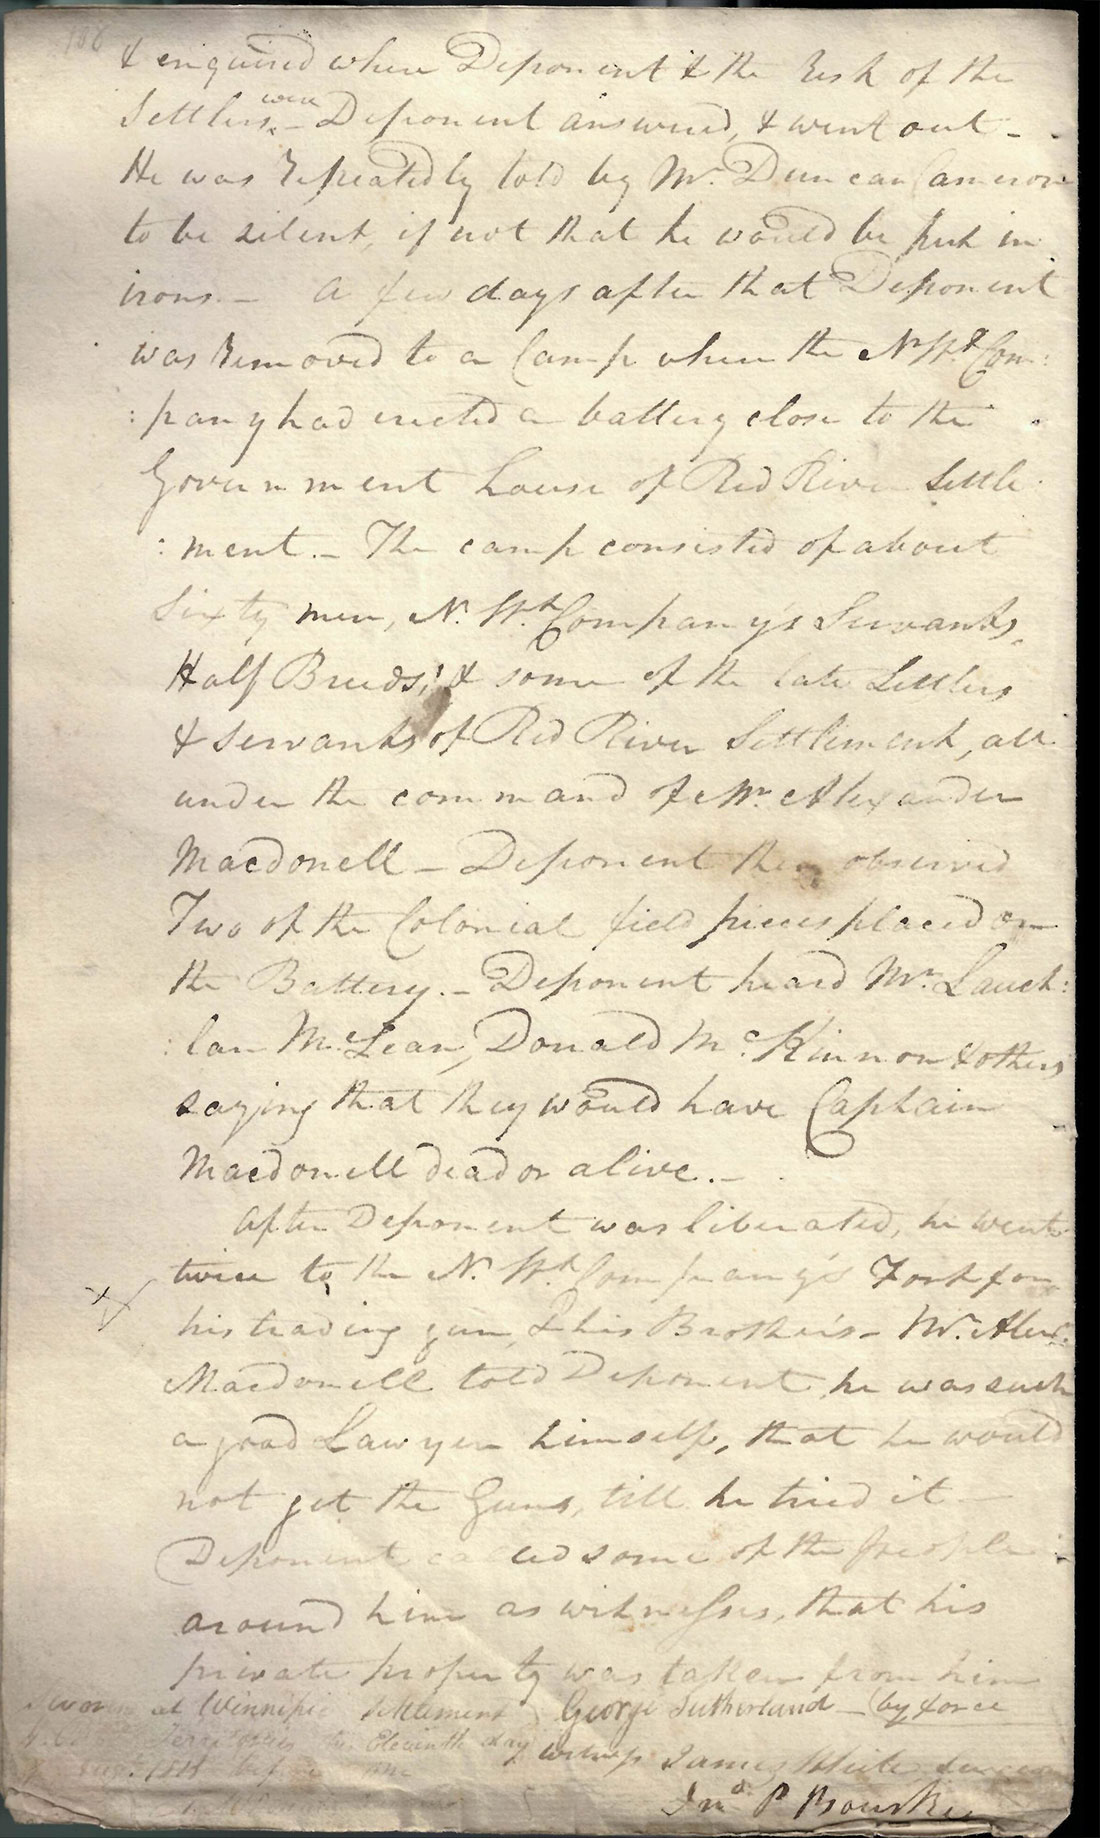 186
& enquired where Deponent & the Rest of the
Settlers were – Deponent answered, & went out –
He was Repeatedly told by Mr. Duncan Cameron
to be silent, if not that he would be put in
irons – A few days after that Deponent
was Removed to a Camp where the N. Wt. Com:
:pany had erected a battery close to the
Government house of Red River Settle:
:ment. – The camp consisted of about
Sixty men, N. Wt. Company's Servants,
Half Breeds, & some of the late Settlers
& Servants of Red River Settlement, all
under the command of Mr. Alexander
Macdonell – Deponent then observed
Two of the Colonial field pieces placed on
the Battery. – Deponent heard Mr. Lauch:
:lan McLean, Donald McKinnon & others
saying that they would have Captain
Macdonell dead or alive. –
After Deponent was liberated, he went
twice to the N. Wt. Company's Fort for
his trading gun, & his Brother's – Mr. Alexr.
Macdonell told Deponent he was such
a good Lawyer himself, that he would
not get the Guns, till he tried it –
Deponent called some of the people
around him as witnesses, that his
private property was taken from him
Sworn at Winnipic Settlement George Sutherland – (by force
this Eleventh day witness James White Surgeon
1815 before me
Jno. P Bourke